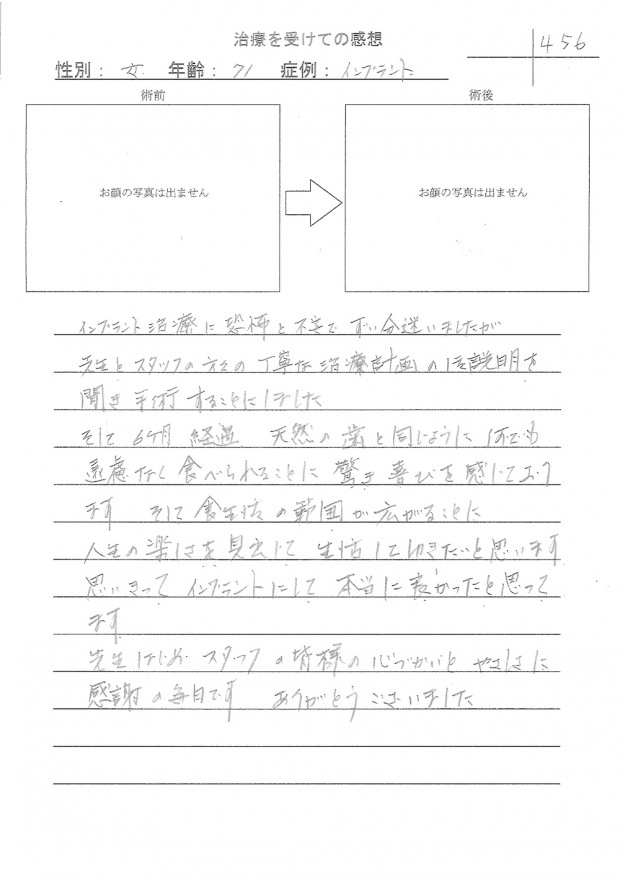 治療を受けての感想
456
性別：女 年齢：71 症例：インプラント
術前 術後
お顔の写真は出ません お顔の写真は出ません
インプラント治療に恐怖と不安で ずい分迷いましたが
先生とスタッフの方々の丁寧な治療計画の 説明を
聞き手術することにしました
そして6ケ月経過 天然の歯と同じように何でも
遠慮なく食べられることに驚き喜びを感じており
ます そして食生活の範囲が広がることに
人生の楽しさを見出して 生活して行きたいと思います
思いきって インプラントにして 本当に良かったと思って
ます
先生はじめ スタッフの皆様の心づかいと やさしさに
感謝の毎日です ありがとうございました